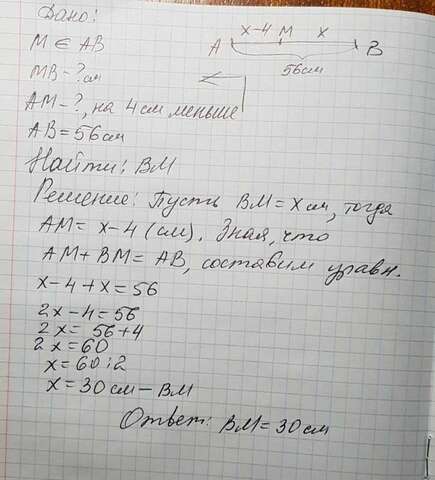 Дано:
M ∈ AB
MB - ? см
AM - ?, на 4 см меньше
AB = 56 см
x-4 M x
A B
56 см
Найти: BM
Решение: Пусть BM = x см, тогда
AM = x-4 (см). Зная, что
AM + BM = AB, составим уравн.
x-4+x = 56
2x-4=56
2x = 56+4
2x = 60
x = 60:2
x = 30 см - BM
Ответ: BM = 30 см